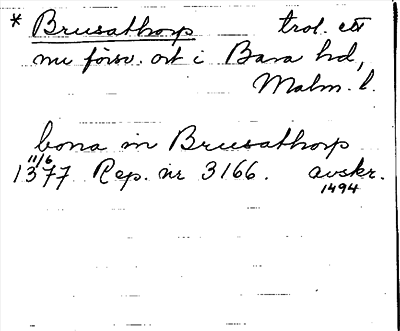 * Brusathorp trol. ett
nu försv. ort i Bara hd,
Malm. l.
bona in Brusathorp
11/6
1377 Rep. nr 3166. avskr.
1494